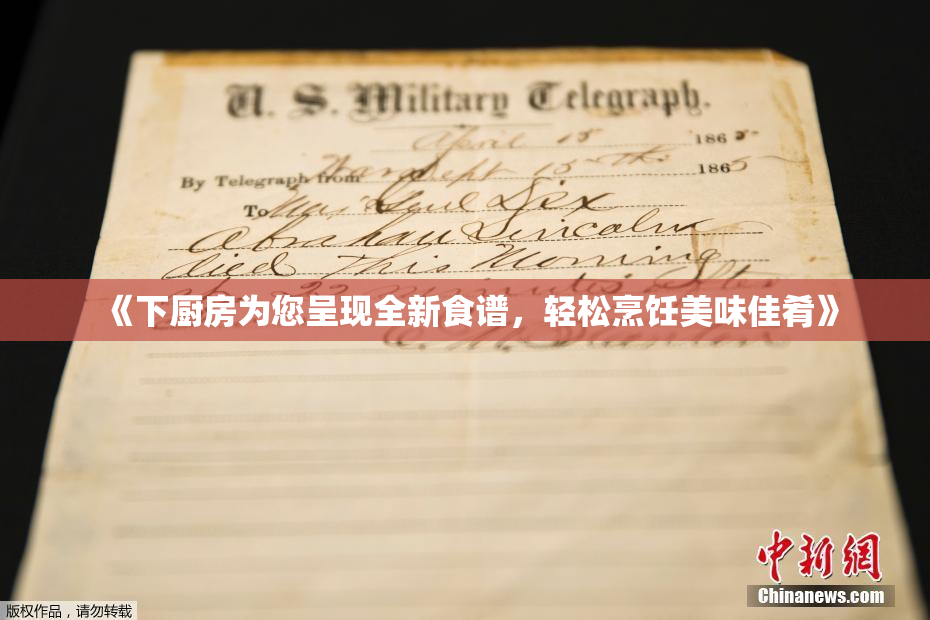 U. S. Military Telegraph.
April 15 1865
By Telegraph from War Dept 15th 1865
To Maj Genl Dix
Abraham Lincoln
died This Morning
at 22 minutes after
《下厨房为您呈现全新食谱，轻松烹饪美味佳肴》
中新网
Chinanews.com
版权作品，请勿转载